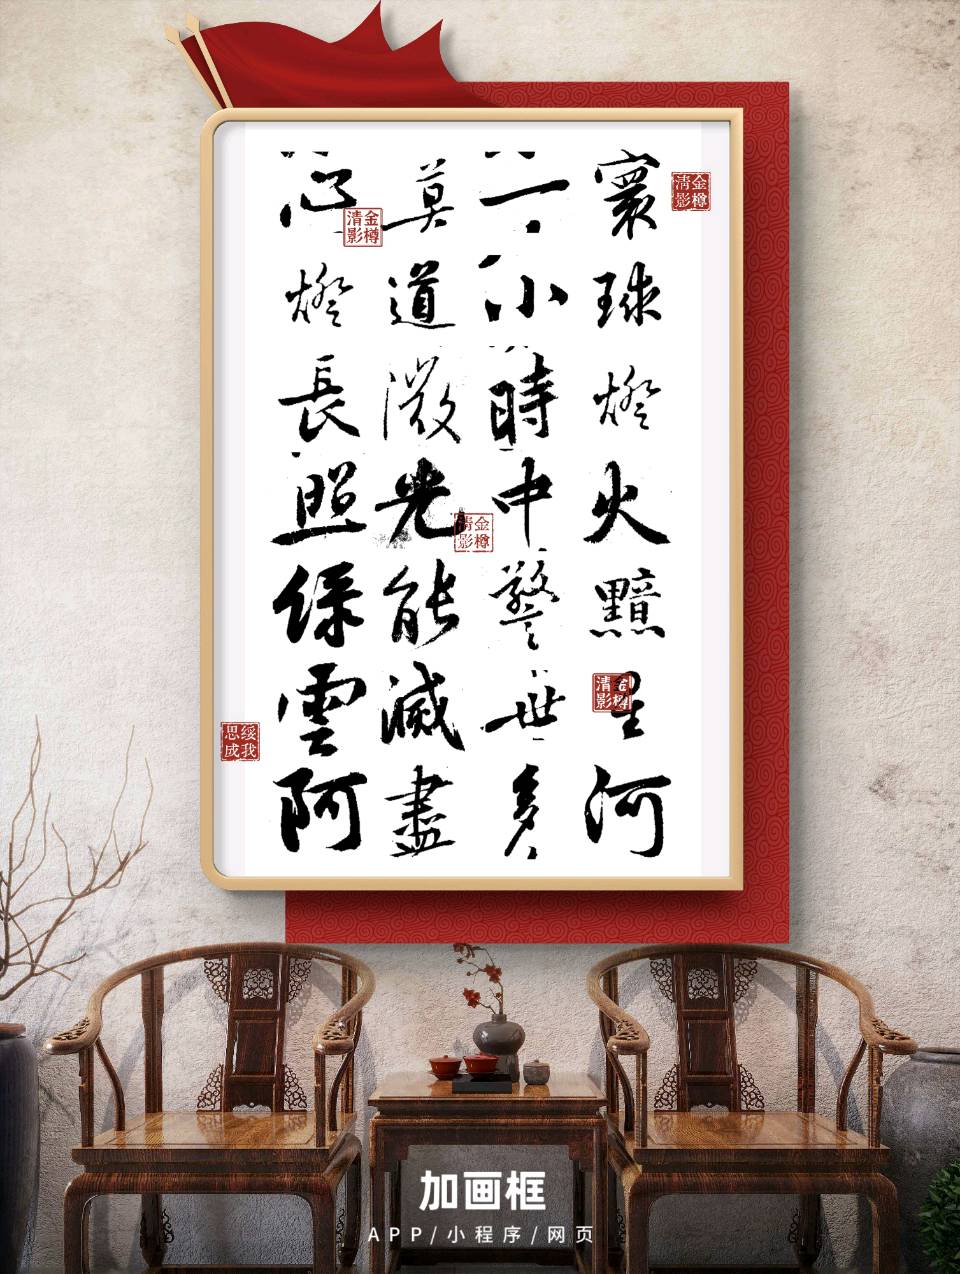 寰球燈火黯星河
一小時中警世多
莫道微光能滅盡
心燈長照綠雲阿
金樽清影
金樽清影
金樽清影
金樽清影
绥我思成
加画框
APP/小程序/网页